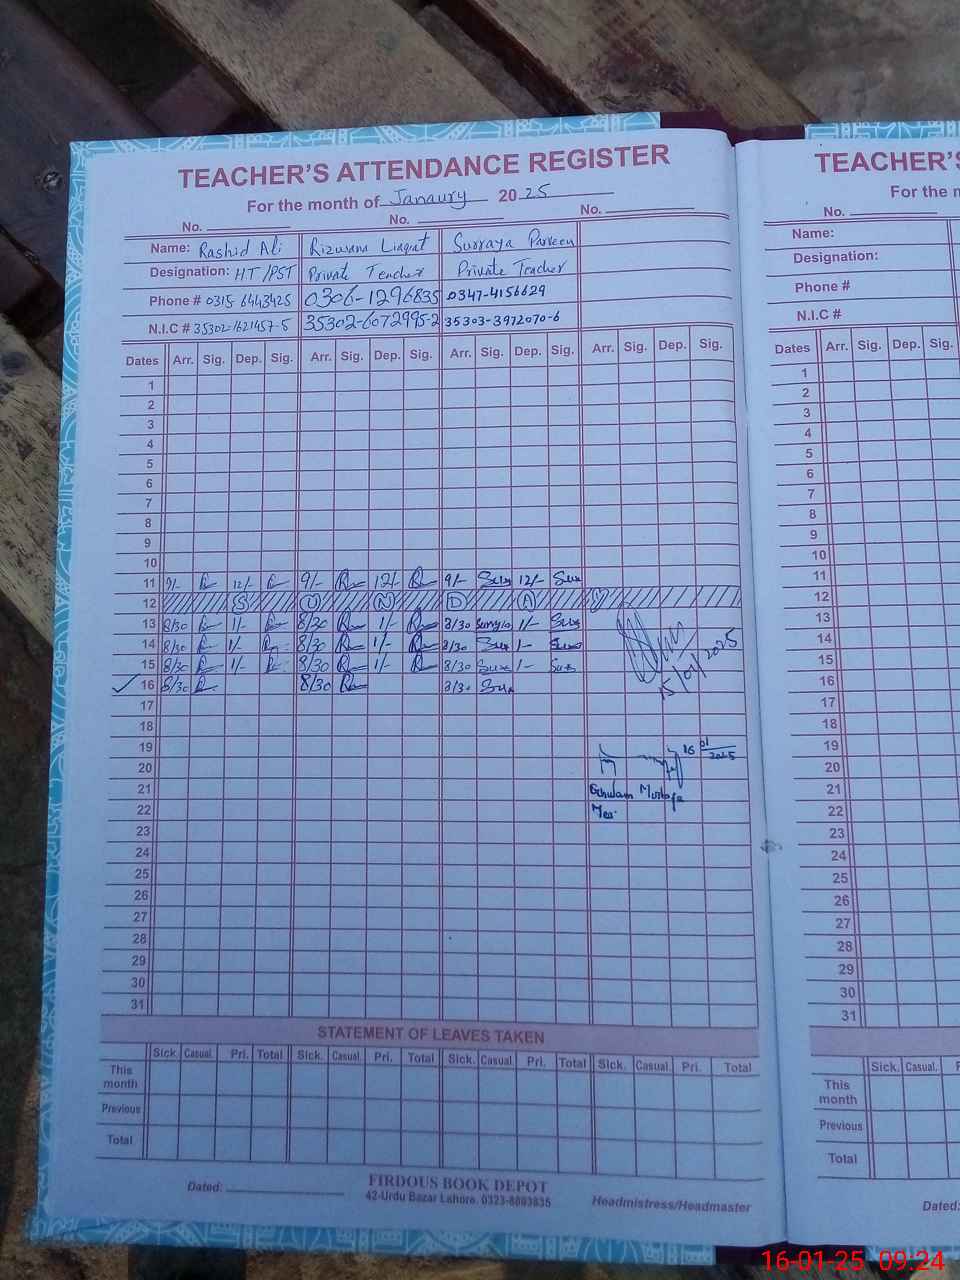 TEACHER'S ATTENDANCE REGISTER
For the month of Janaury 2025
No. No. No.
Name: Rashid Ali Rizwana Liaqat Surraya Parveen
Designation: HT/PST Private Teacher Private Teacher
Phone # 0315-6443425 0306-1296835 0347-4156629
N.I.C # 35302-1621457-5 35302-6072995-2 35303-3972070-6
Dates Arr. Sig. Dep. Sig. Arr. Sig. Dep. Sig. Arr. Sig. Dep. Sig. Arr. Sig. Dep. Sig.
1
2
3
4
5
6
7
8
9
10
11 9/- 12/- 9/- 12/- 9/- Sur 12/- Sur
12 S U N D A Y
13 8/30 1/- 8/30 1/- 8/30 1/- Sur
14 8/30 1/- 8/30 1/- 8/30 Sur 1/- Sur
15 8/30 1/- 8/30 1/- 8/30 Sur 1/- Sur
15/01/2025
16 8/30 8/30 8/30 Sur
17
18
19
16/01/2025
20
21
Ghulam Mustafa
22
Mea
23
24
25
26
27
28
29
30
31
STATEMENT OF LEAVES TAKEN
Sick. Casual. Pri. Total Sick. Casual. Pri. Total Sick. Casual. Pri. Total Sick. Casual. Pri. Total
This month
Previous
Total
Dated:
FIRDOUS BOOK DEPOT
42-Urdu Bazar Lahore. 0323-8893835
Headmistress/Headmaster
TEACHER'S
For the m
No.
Name:
Designation:
Phone #
N.I.C #
Dates Arr. Sig. Dep. Sig.
1
2
3
4
5
6
7
8
9
10
11
12
13
14
15
16
17
18
19
20
21
22
23
24
25
26
27
28
29
30
31
Sick. Casual.
This month
Previous
Total
Dated:
16-01-25 09:24